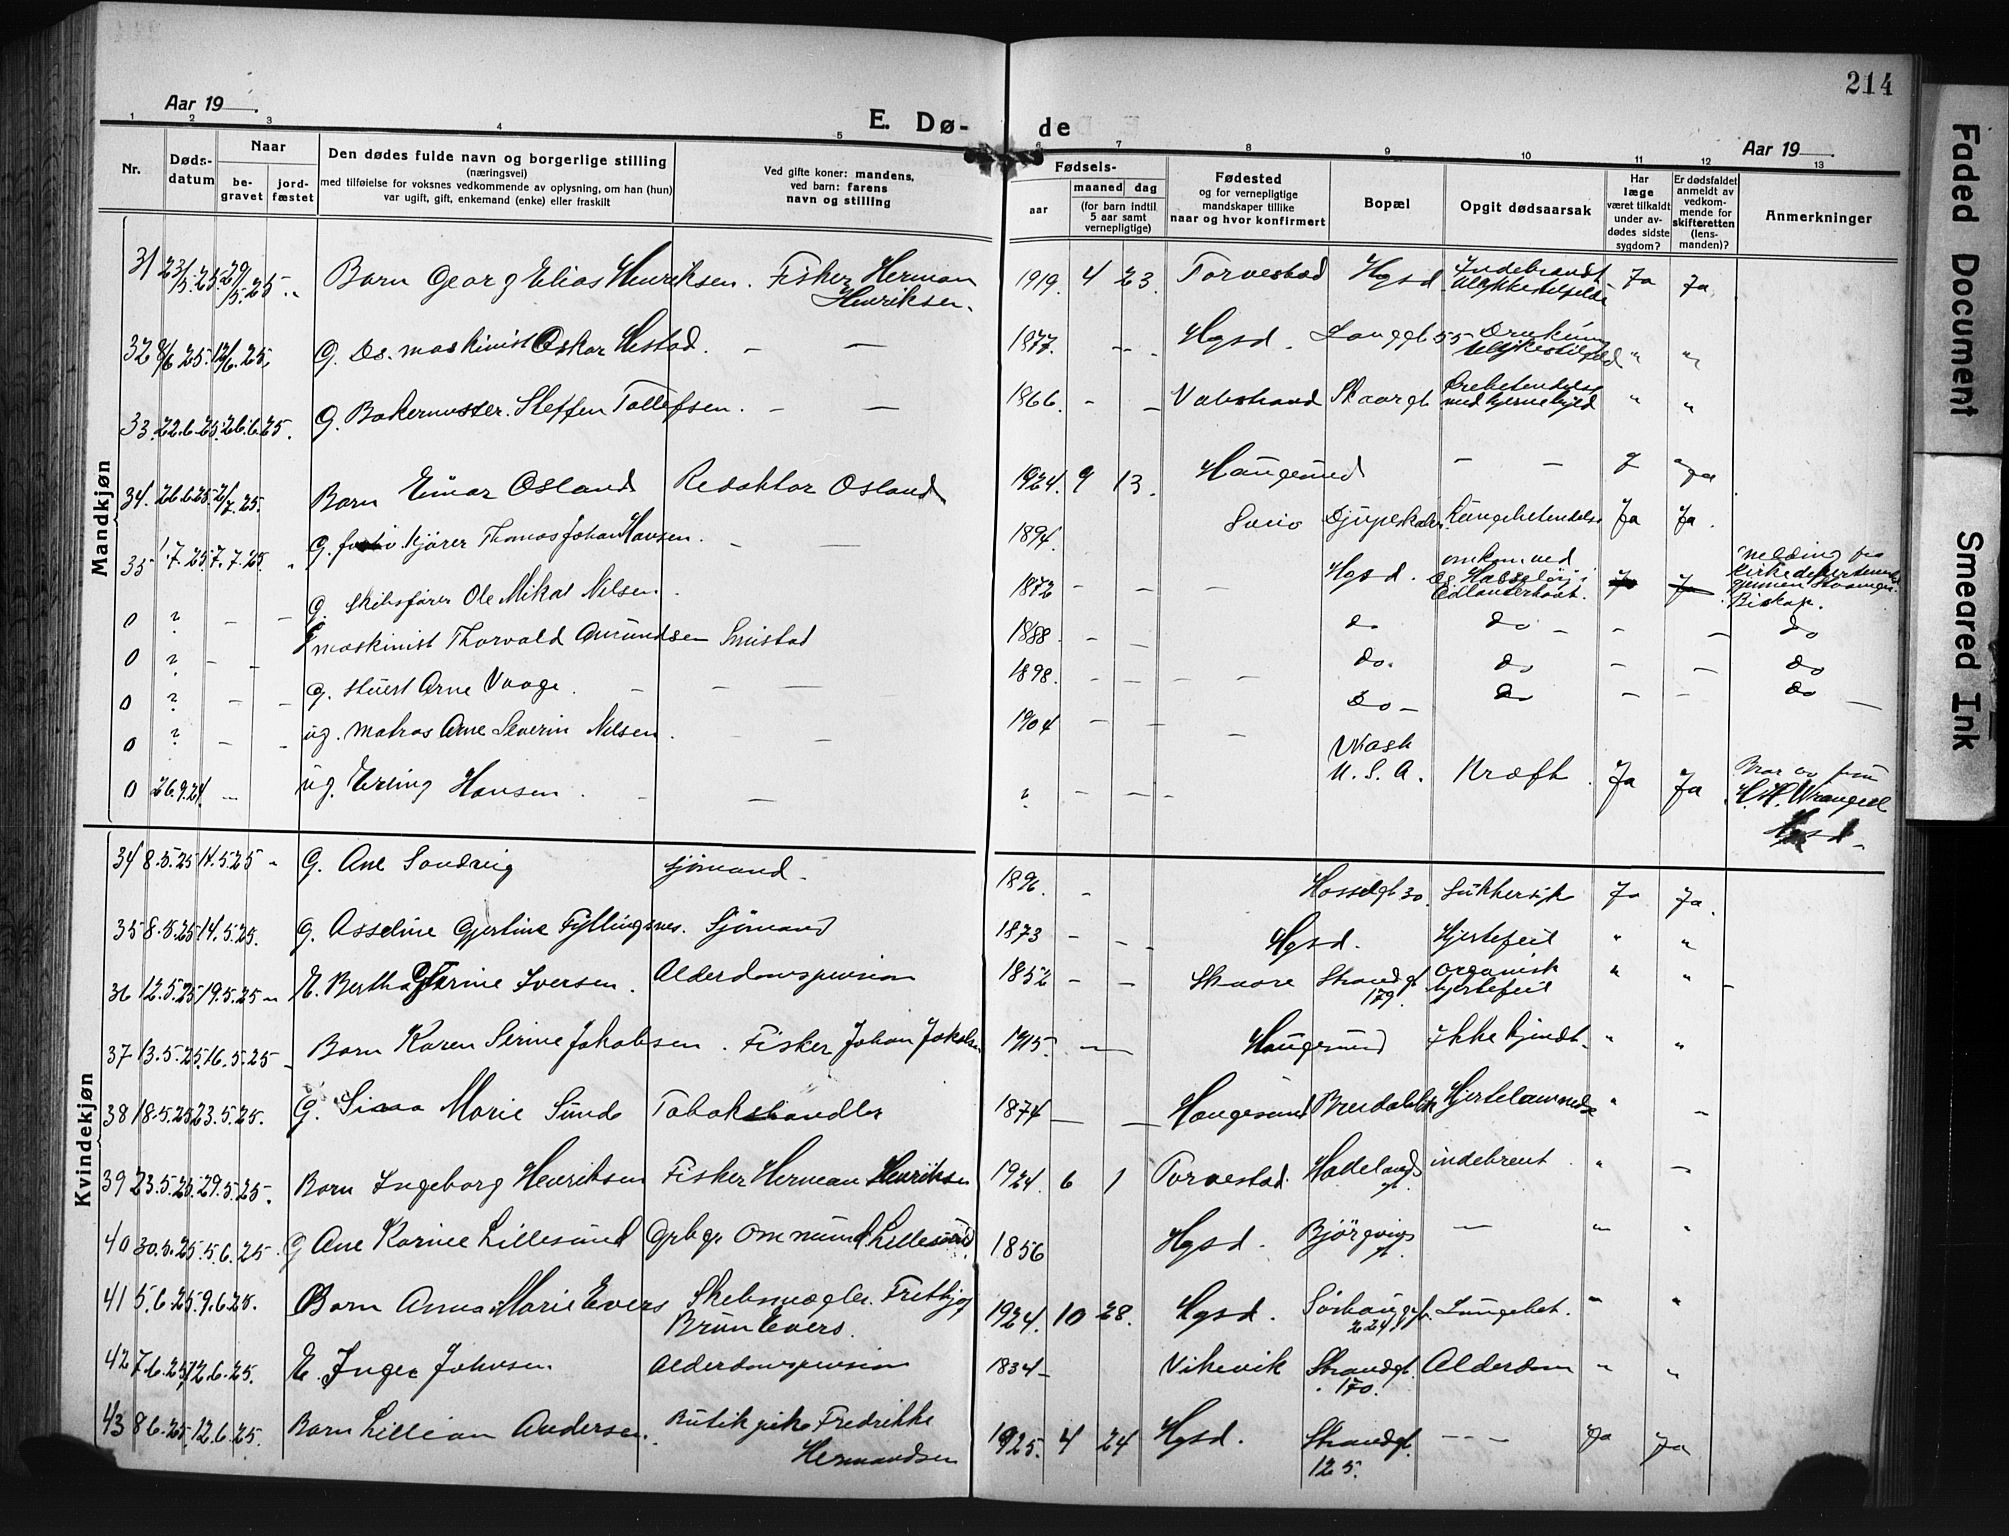 214
Aar 19
E. Dø-
de
Aar 19
1 2 3 4 5 6 7 8 9 10 11 12 13
Nr.
Døds-
datum
Naar
be-
gravet
jord-
fæstet
Den dødes fulde navn og borgerlige stilling
(næringsvei)
med tilføielse for voksnes vedkommende av oplysning, om han (hun)
var ugift, gift, enkemand (enke) eller fraskilt
Ved gifte koner: mandens,
ved barn: farens
navn og stilling
Fødsels-
aar
maaned dag
(for barn indtil
5 aar samt
vernepligtige)
Fødested
og for vernepligtige
mandskaper tillike
naar og hvor konfirmert
Bopæl
Opgit dødsaarsak
Har
læge
været tilkaldt
under av-
dødes sidste
sygdom?
Er dødsfaldet
anmeldt av
vedkom-
mende for
skifteretten
(lens-
manden)?
Anmerkninger
Mandkjøn
31 23/5.25 29/5.25 Barn Georg Elias Henriksen. Fisker Herman
Henriksen. 1919. 4 23. Torvestad Hgsd Indebrændt Ja Ja
32 8/6 25. 12/6.25. G. Ds. maskinist Oskar Hestad. — — 1877. Hgsd. Langgt 55 " "
33. 22.6.25. 26.6.25. G. Bakermester. Steffen Tollefsen. — — 1866. — — Skaargt " "
34. 26.6.25. 2/7.25. Barn Einar Osland Redaktør Osland 1924. 9 13. Haugesund — — Ja
35 1.7.25 7.7.25. G. Kjører Thomas Johan Hansen. — — 1894 Djupeskaar. Lungebetendelse Ja Ja.
0 ? — — G. Skibsfører Ole Mikal Nilsen. 1872 — — Hgsd. omkom ved
Ds Ja Ja Melding fra
Biskop.
0 ? — — maskinist Thorvald Amundsen Smistad 1888 — — do do — — do
0 ? — — G. stuert Arne Vaage. — — — 1898. — — — do. do — — do
0 ? — — ug. matros Arne Severin Nilsen. — 1904 — — — Do — do — — do
0 26.9.24. — ug. Erling Hansen. — — ? — — — Wash
U.S.A. Kræft. Ja Ja Bror av fru
H.H. Wrangell
Hgsd.
Kvindekjøn
34 8.5.25 14.5.25 G. Ane Sandvig sjømand. 1896. — Hasselgt 30. Sukkersyk Ja Ja.
35 8.5.25 14.5.25. G. Asseline Gjertine Fyllingsnes. Sjømand 1873 — — — Hgsd. Hjertefeil " "
36 12.5.25 19.5.25 — E. Bertha Iversen. Alderdomspension 1852 — — Skaare Strandgt
179. organisk
hjertefeil " "
37 13.5.25. 16.5.25 Barn Karen Serine Jakobsen. Fisker Johan Jakobsen 1915. — Haugesund Ikke kjendt. " "
38 18.5.25 23.5.25. G. Marie Sunde Tobakshandler 1874 — — Haugesund Hjertelammelse " —
39 23.5.25. 29.5.25. Barn Ingeborg Henriksen Fisker Herman Henriksen 1924. 6 1 Torvestad. Haðelands
gt. indebrent. " —
40 30.5.25. 5.6.25. G Ane Karine Lillesund Ommund Lillesund. 1856 Hgsd. Bjørgvins
gt. — " "
41 5.6.25. 9.6.25. Barn Anna Marie Evers Skibsmægler. Frithjof
Brun Evers. 1924. 10 28. Hgsd. Sørhauggt.
224 Lungebet. " "
42 7.6.25. 12.6.25. E. Inger Johnsen Alderdomspension 1834 — Vikevik Strandgt.
170. Alderdom " "
43 8.6.25. 12.6.25. Barn Lillian Andersen. Butikpike Fredrikke
Hermandsen 1925. 4 24 Hgsd. Strandgt.
125. — — — Ja Ja
Faded Document
Smeared Ink